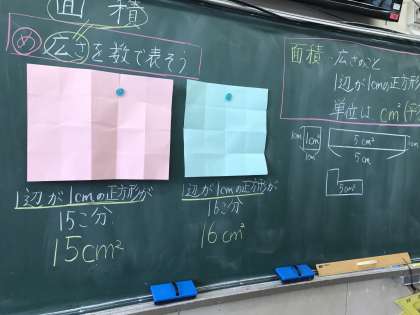 面積
め 広さを数で表そう
1辺が1cmの正方形が
15こ分
15cm²
1辺が1cmの正方形が
16こ分
16cm²
面積 広さのこと
1辺が1cmの正方形
単位は cm²
1cm
1cm²
1cm
5cm²
5cm
5cm²